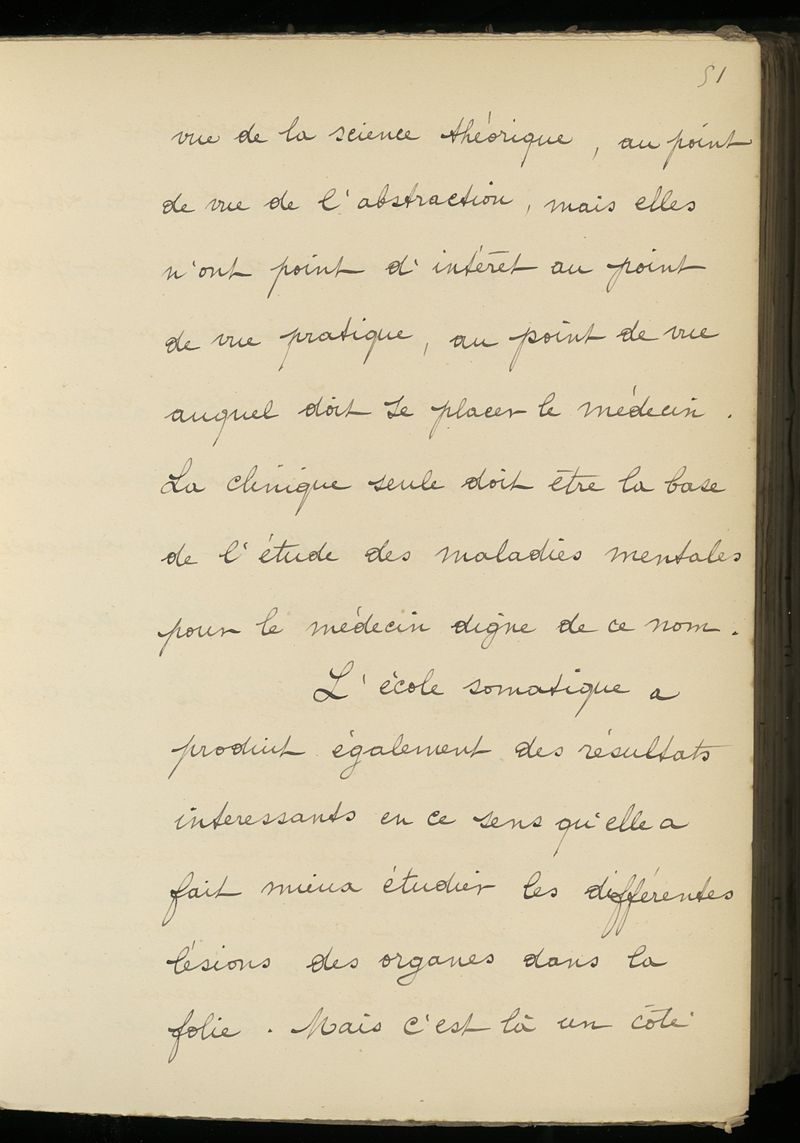 51
vue de la science théorique, au point
de vue de l'abstraction, mais elles
n'ont point d'intérêt au point
de vue pratique, au point de vue
auquel doit se placer le médecin.
La clinique seule doit être la base
de l'étude des maladies mentales
pour le médecin digne de ce nom.
L'école somatique a
produit également des résultats
interessants en ce sens qu'elle a
fait mieux étudier les différentes
lésions des organes dans la
folie. Mais c'est là un côté